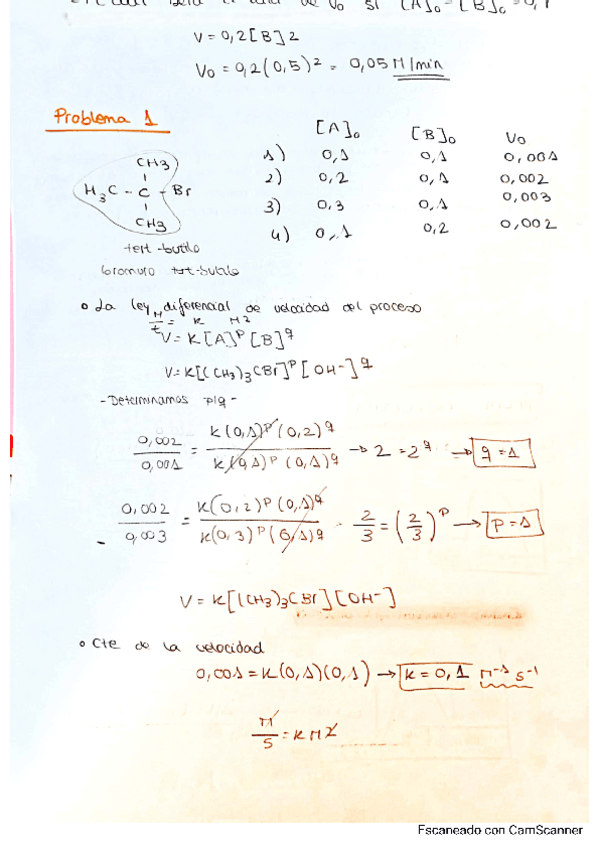 V = 0,2 [B]2
Vo = 0,2(0,5)² = 0,05 M/min
Problema 1
[A]₀ [B]₀ Vo
1) 0,1 0,1 0,001
2) 0,2 0,1 0,002
3) 0,3 0,1 0,003
4) 0,1 0,2 0,002
CH3
H3C - C - Br
CH3
tert-butilo
bromuro tert-butilo
o La ley diferencial de velocidad del proceso
M/t = K M2
V = K[A]ᵖ [B]^q
V = K[(CH3)3CBr]ᵖ [OH-]^q
- Determinamos p/q -
0,002/0,001 = K(0,1)ᵖ (0,2)^q / K(0,1)ᵖ (0,1)^q → 2 = 2^q → q = 1
- 0,002/0,003 = K(0,2)ᵖ (0,1)^q / K(0,3)ᵖ (0,1)^q - 2/3 = (2/3)ᵖ → p = 1
V = K[(CH3)3CBr][OH-]
o Cte de la velocidad
0,001 = K(0,1)(0,1) → K = 0,1 M⁻¹ s⁻¹
M/s = K M2
Escaneado con CamScanner